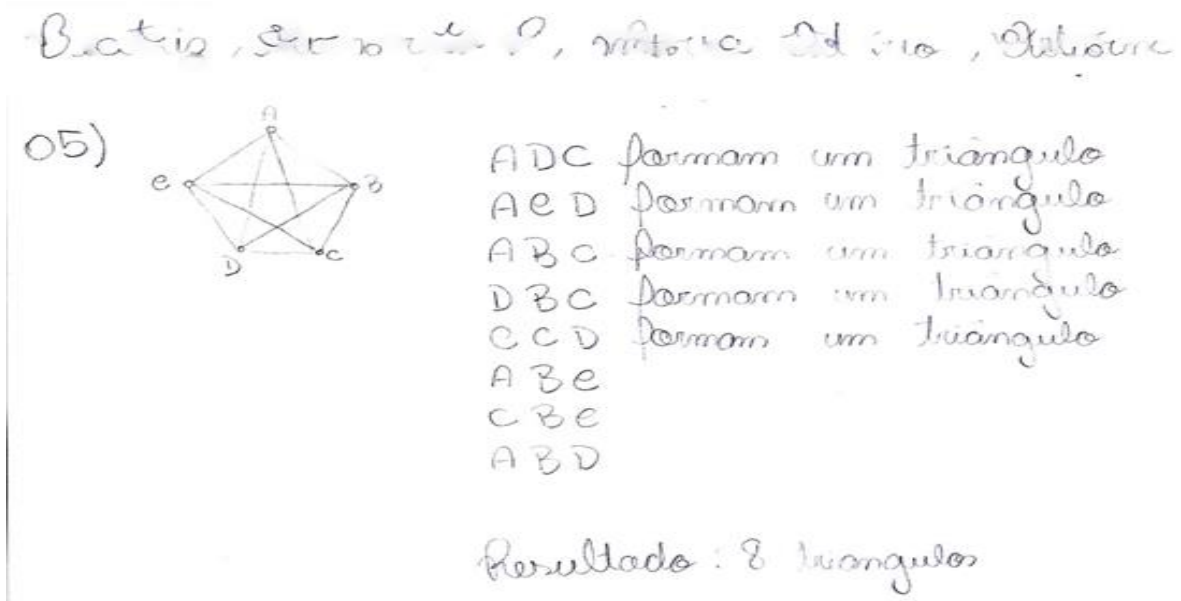 05)
A
e B
D C
ADC formam um triângulo
AeD formam um triângulo
ABC formam um triângulo
DBC formam um triângulo
CCD formam um triângulo
ABe
CBe
ABD
Resultado: 8 triangulos